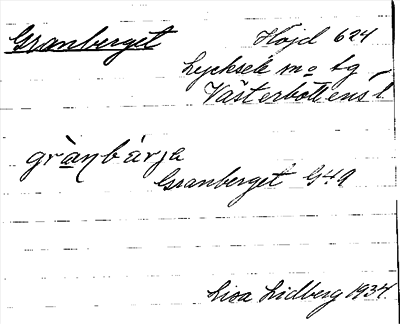 Granberget
Höjd 624
Lycksele m o tg
Västerbottens l.
grà̱ŋbárja
Granberget G49
Lisa Lidberg 1934.